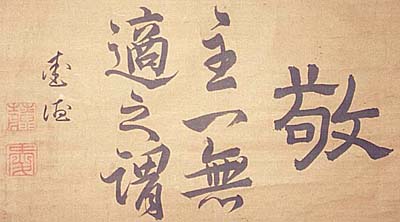 敬
主一無
適之謂